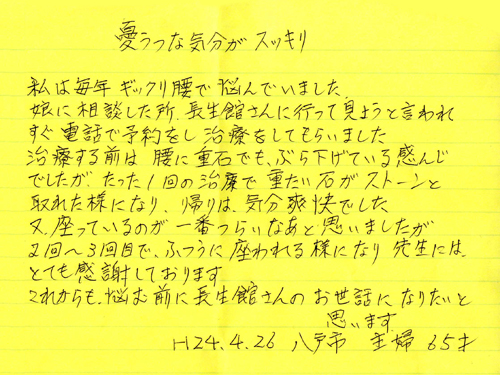 憂うつな気分が スッキリ
私は毎年 ギックリ腰で悩んでいました。
娘に相談した所、長生館さんに行って見ようと言われ
すぐ電話で予約をし治療をしてもらいました
治療する前は 腰に重石でも、ぶら下げている感んじ
でしたが、たった1回の治療で 重たい石がストーンと
取れた様になり、帰りは、気分爽快でした
又、座っているのが 一番つらいなあと思いましたが
2回〜3回目で、ふつうに座われる様になり 先生には、
とても感謝しております
これからも、悩む前に長生館さんの お世話になりたいと
思います
H24.4.26 八戸市 主婦 65才